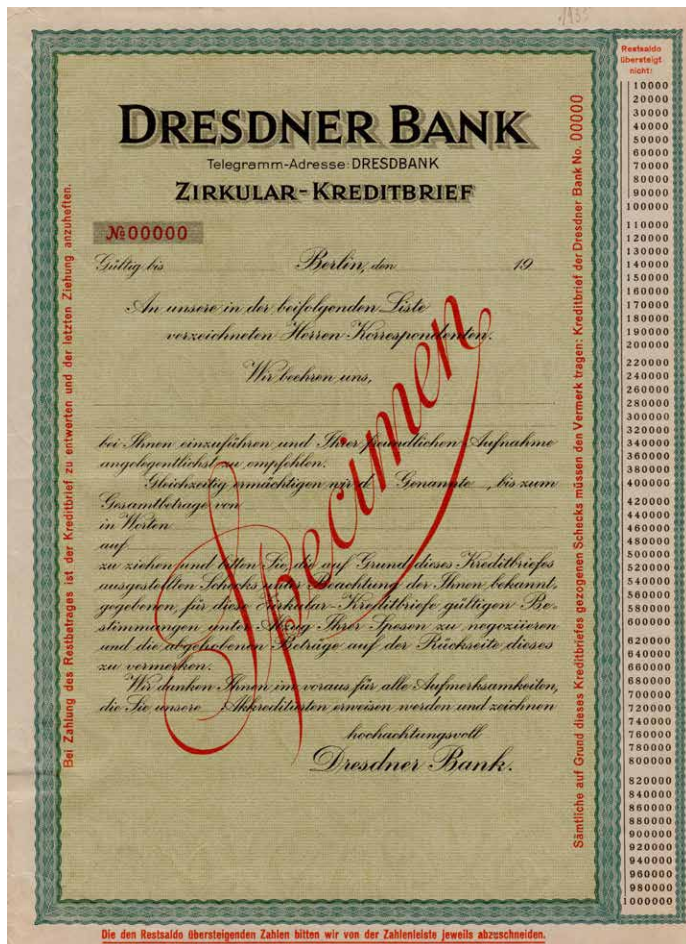 1933
Restsaldo
übersteigt
nicht:
DRESDNER BANK
Telegramm-Adresse: DRESDBANK
ZIRKULAR-KREDITBRIEF
№ 00000
Gültig bis Berlin, den 19
An unsere in der beifolgenden Liste
verzeichneten Herren Korrespondenten.
Wir beehren uns,
bei Ihnen einzuführen und Ihrer freundlichen Aufnahme
angelegentlichst zu empfehlen.
Gleichzeitig ermächtigen wir d Genannte , bis zum
Gesamtbetrage von
in Worten
auf
zu ziehen und bitten Sie, die auf Grund dieses Kreditbriefes
ausgestellten Schecks unter Beachtung der Ihnen bekannt,
gegebenen, für diese Zirkular-Kreditbriefe gültigen Be-
stimmungen unter Abzug Ihrer Spesen zu negoziieren
und die abgehobenen Beträge auf der Rückseite dieses
zu vermerken.
Wir danken Ihnen im voraus für alle Aufmerksamkeiten,
die Sie unsere Akkreditierten erweisen werden und zeichnen
hochachtungsvoll
Dresdner Bank.
Specimen
Bei Zahlung des Restbetrages ist der Kreditbrief zu entwerten und der letzten Ziehung anzuheften.
Sämtliche auf Grund dieses Kreditbriefes gezogenen Schecks müssen den Vermerk tragen: Kreditbrief der Dresdner Bank No. 00000
10000
20000
30000
40000
50000
60000
70000
80000
90000
100000
110000
120000
130000
140000
150000
160000
170000
180000
190000
200000
220000
240000
260000
280000
300000
320000
340000
360000
380000
400000
420000
440000
460000
480000
500000
520000
540000
560000
580000
600000
620000
640000
660000
680000
700000
720000
740000
760000
780000
800000
820000
840000
860000
880000
900000
920000
940000
960000
980000
1000000
Die den Restsaldo übersteigenden Zahlen bitten wir von der Zahlenleiste jeweils abzuschneiden.